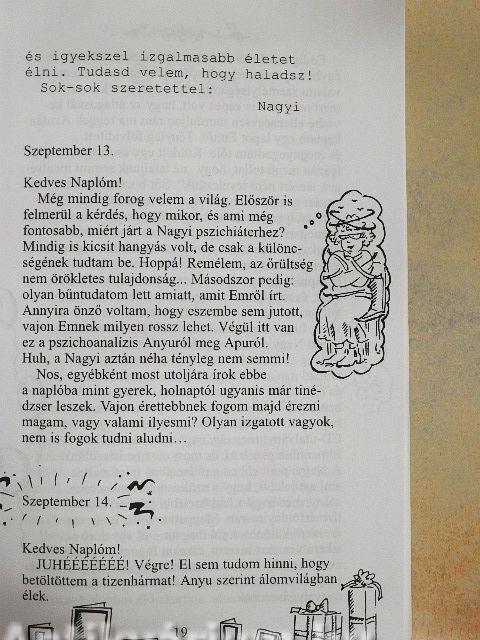 és igyekszel izgalmasabb életet
élni. Tudasd velem, hogy haladsz!
Sok-sok szeretettel:
Nagyi
Szeptember 13.
Kedves Naplóm!
Még mindig forog velem a világ. Először is
felmerül a kérdés, hogy mikor, és ami még
fontosabb, miért járt a Nagyi pszichiáterhez?
Mindig is kicsit hangyás volt, de csak a különc-
ségének tudtam be. Hoppá! Remélem, az őrültség
nem örökletes tulajdonság... Másodszor pedig:
olyan bűntudatom lett amiatt, amit Emről írt.
Annyira önző voltam, hogy eszembe sem jutott,
vajon Emnek milyen rossz lehet. Végül itt van
ez a pszichoanalízis Anyuról meg Apuról.
Huh, a Nagyi aztán néha tényleg nem semmi!
Nos, egyébként most utoljára írok ebbe
a naplóba mint gyerek, holnaptól ugyanis már tiné-
dzser leszek. Vajon érettebbnek fogom majd érezni
magam, vagy valami ilyesmi? Olyan izgatott vagyok,
nem is fogok tudni aludni…
Szeptember 14.
Kedves Naplóm!
JUHÉÉÉÉÉÉÉ! Végre! El sem tudom hinni, hogy
betöltöttem a tizenhármat! Anyu szerint álomvilágban
élek.
19